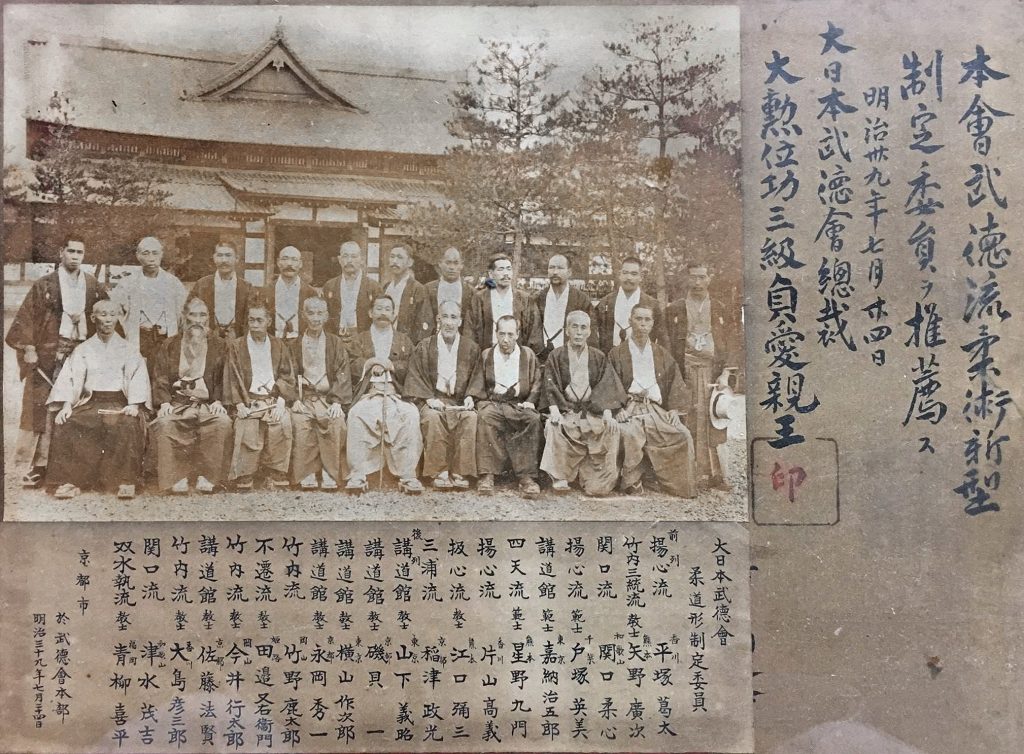 本會武徳流柔術新型
制定委員ヲ推薦ス
明治卅九年七月廿四日
大日本武徳會總裁
大勲位功三級貞愛親王
印
大日本武徳會
柔道形制定委員
前列
揚心流 香川 平塚葛太
竹内三統流 教士 熊本 矢野廣次
関口流 和歌山 関口柔心
揚心流 範士 千葉 戸塚英美
講道館 範士 東京 嘉納治五郎
四天流 範士 熊本 星野九門
揚心流 香川 片山高義
扱心流 教士 熊本 江口彌三
三浦流 京都 稲津政光
後列
講道館 教士 東京 山下義昭
講道館 教士 京都 磯貝一
講道館 教士 東京 横山作次郎
講道館 教士 京都 永岡秀一
竹内流 岡山 竹野鹿太郎
不遷流 教士 姫路 田邉又右衛門
竹内流 教士 岡山 今井行太郎
講道館 教士 京都 佐藤法賢
竹内流 教士 香川 大島彦三郎
関口流 教士 和歌山 津水茂吉
双水執流 教士 福岡 青柳喜平
京都市
於武徳會本部
明治三十九年七月二十四日